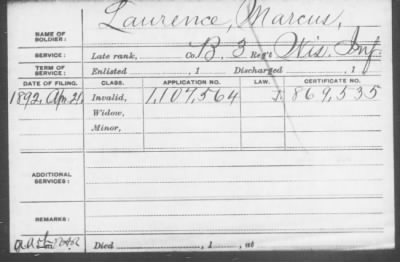 Laurence, Marcus,
NAME OF SOLDIER:
SERVICE: Late rank, Co. B, 3 Reg't Wis. Inf.
TERM OF SERVICE: Enlisted , 1 Discharged , 1
DATE OF FILING. CLASS. APPLICATION NO. LAW. CERTIFICATE NO.
1892, Apr 21, Invalid, 1,107,564 J. 869,535
Widow,
Minor,
ADDITIONAL SERVICES:
REMARKS:
Died , 1 , at